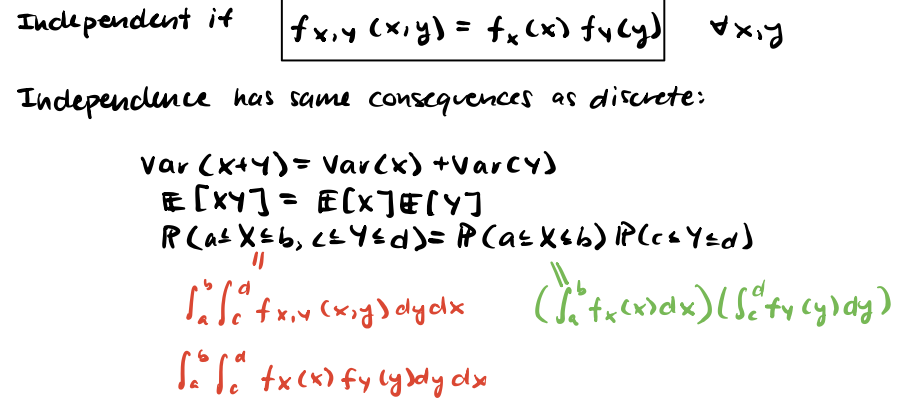 Independent if f_{X,Y}(x,y) = f_X(x) f_Y(y) ∀x,y
Independence has same consequences as discrete:
Var(X+Y) = Var(X) + Var(Y)
𝔼[XY] = 𝔼[X]𝔼[Y]
ℙ(a≤X≤b, c≤Y≤d) = ℙ(a≤X≤b) ℙ(c≤Y≤d)
∫_a^b ∫_c^d f_{X,Y}(x,y) dy dx (∫_a^b f_X(x)dx)(∫_c^d f_Y(y)dy)
∫_a^b ∫_c^d f_X(x) f_Y(y)dy dx